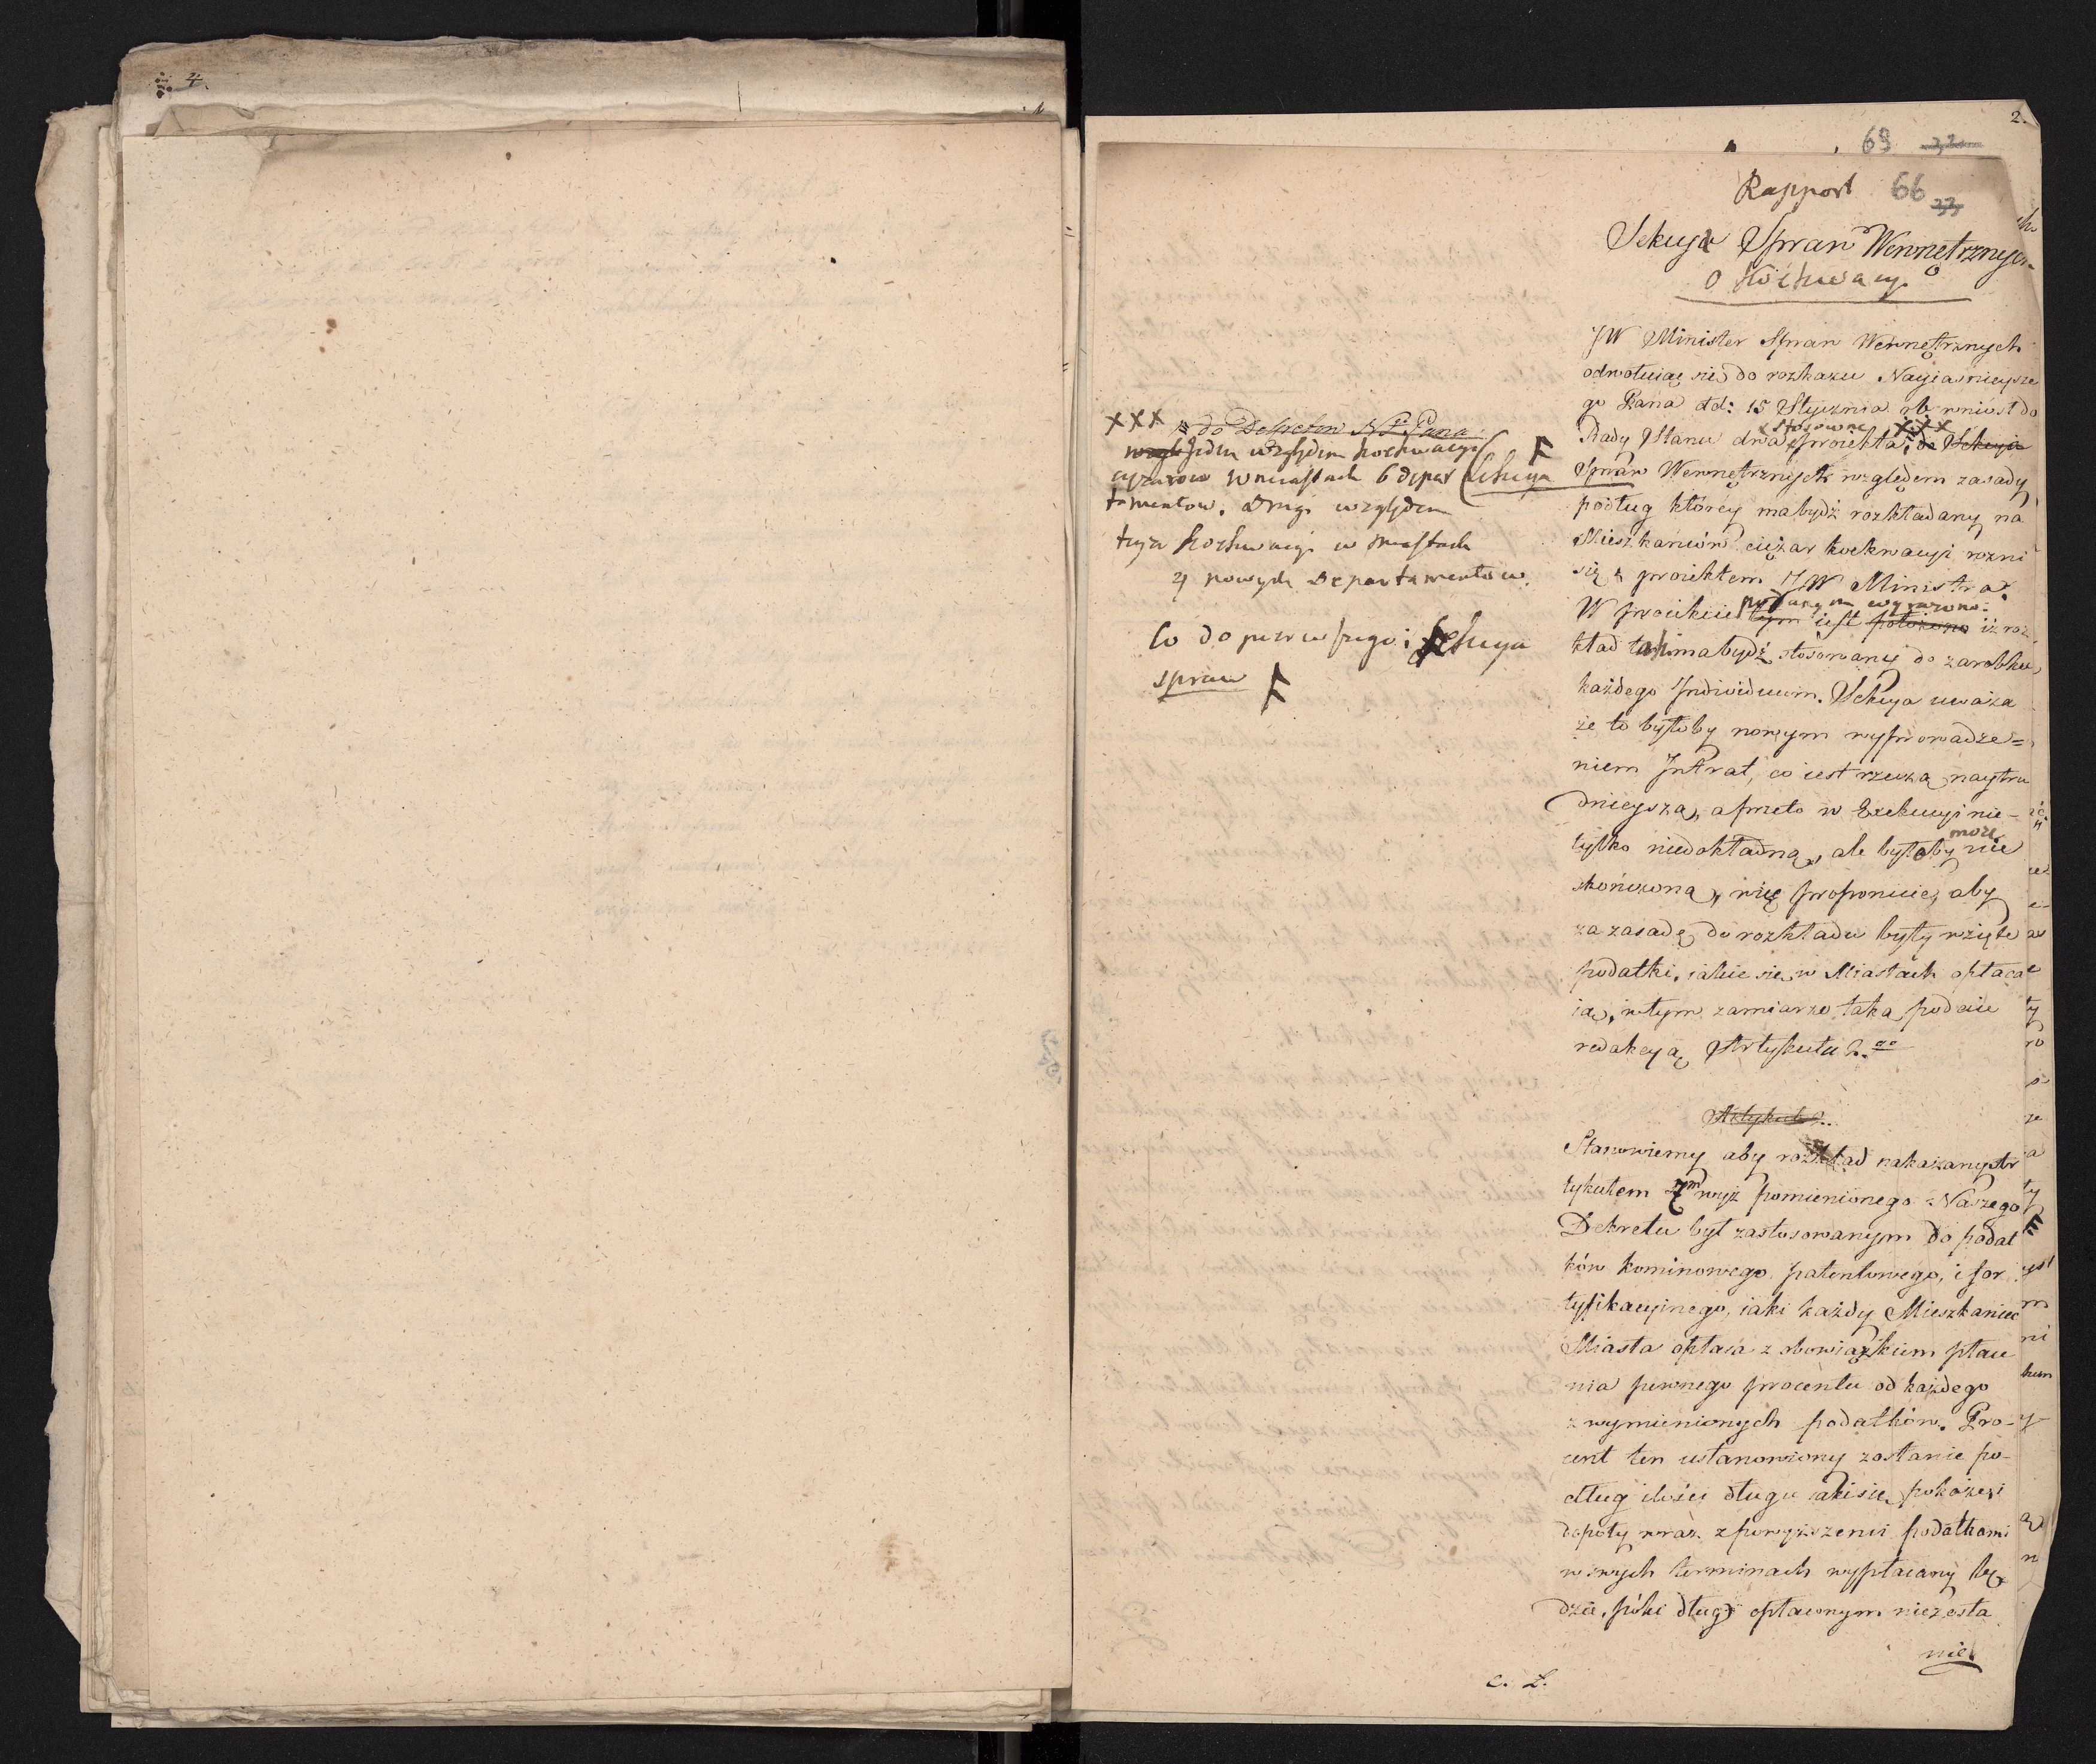 4.
2.
69 22
66 23
Rapport
Sekcyi Spraw Wewnętrznych
o Kwikwacyi
JW Minister Spraw Wewnętrznych
odwołuiąc się do rozkazu Nayiaśnieysze
go Pana dd: 15 Stycznia rb. wniosł do
stosowne XXX
Rady Stanu dwa proiekta, do Sekcyia
Spraw Wewnętrznych względem zasady
podług którey ma bydź rozkładany na
Mieszkańców ciężar kwikwacyi rożni
się z proiektem JW Ministra.
podanym wyrażono
W proiekcie tym iest położono iż roz
kład taki ma bydź stosowany do zarobku
każdego Individuum. Sekcya uważa
że to byłoby nowym wyprowadze=
niem Intrat, co iest rzeczą naytru
dnieyszą, a przeto w Exekucyi nie-
może
tylko niedokładną, ale byłoby nie
skończoną, więc proponuie, aby
za zasadę do rozkładu były wzięte
podatki, iakie się w Miastach opłaca
ią, w tym zamiarze taką podaie
redakcyą Artykułu 2.go
Artykuł 2.
Stanowiemy aby rozkład nakazany Ar
tykułem 7m wyż pomienionego Naszego
Dekretu był zastosowanym do podat
ków kominowego, patentowego, i for
tyfikacyinego, iaki każdy Mieszkaniec
Miasta opłaca z obowiązkiem płace
nia pewnego procentu od każdego
z wymienionych podatków. Pro-
cent ten ustanowiony zostanie po-
dług ilości długu iaki się pokaże, i
dopoty wraz z powyższemi podatkami
w swych terminach wypłacany bę
dzie, póki dług opłaconym niezosta
nie
XXX do Dekretow N. Pana
względem względem kwikwacyi F
ciężarow w miastach 6 depar Sekcya
tamentow. Drugi względem
teyże kwikwacyi w miastach
4 nowych Departamentow.
Co do pierwszego: Sekcya
spraw F
c. L.